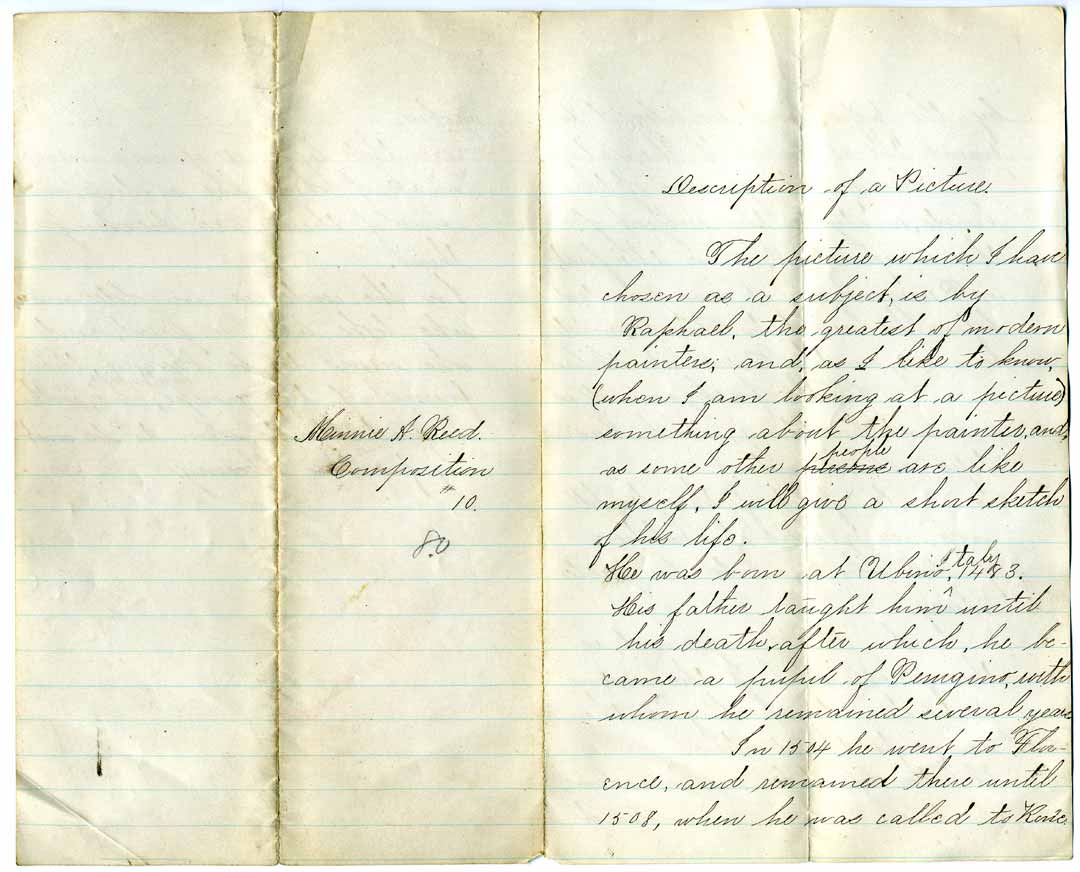 Minnie A. Reed.
Composition
" 10.
80
Description of a Picture.
The picture which I have
chosen as a subject, is by
Raphael, the greatest of modern
painters; and, as I like to know,
(when I am looking at a picture)
something about the painter, and,
as some other people are like
myself, I will give a short sketch
of his life.
He was born at Ubino, Italy 1483.
His father taught him until
his death, after which, he be-
came a pupil of Perugino, with
whom he remained several years
In 1504 he went to Flor-
ence, and remained there until
1508, when he was called to Rome